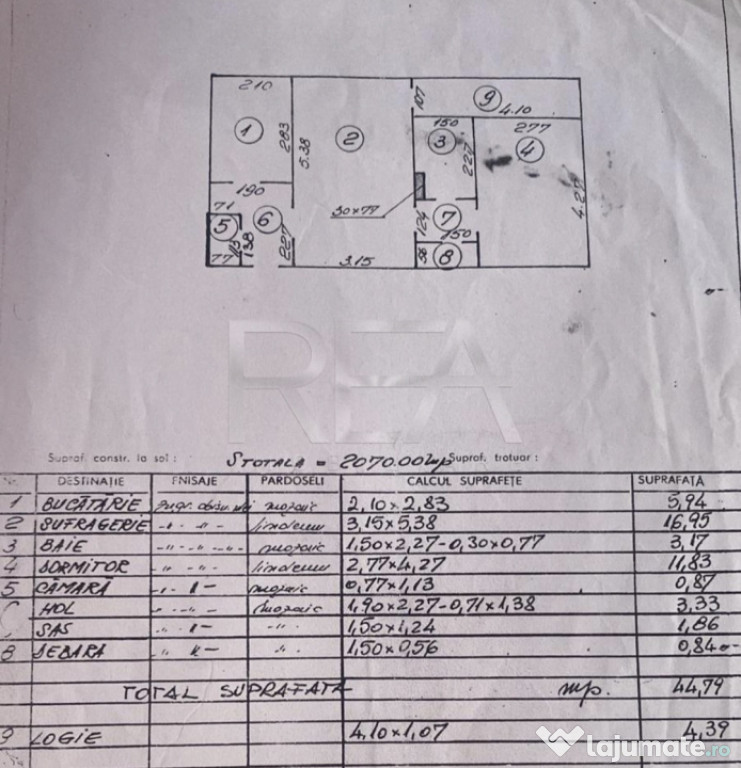 210
107
9
4.10
1
283
5.38
2
150
3
227
277
4
4.27
190
71
5
6
30x77
124
7
150
1.13
138
227
77
3.15
56
8
REA
Supraf. constr. la sol : STOTALA = 2070.00mp Supraf. trotuar :
Nr. DESTINAȚIE FINISAJE PARDOSELI CALCUL SUPRAFEȚE SUPRAFAȚĂ
1 BUCĂTĂRIE mozaic 2,10x2,83 5,94
2 SUFRAGERIE -"- -"- linoleum 3,15x5,38 16,95
3 BAIE -"- -"- mozaic 1,50x2,27-0,30x0,77 3,17
4 DORMITOR -"- -"- linoleum 2,77x4,27 11,83
5 CĂMARĂ -"- mozaic 0,77x1,13 0,87
HOL -"- mozaic 1,90x2,27-0,71x1,38 3,33
SAS -"- -"- 1,50x1,24 1,86
8 DEBARA -"- -"- 1,50x0,56 0,84
TOTAL SUPRAFAȚA mp. 44,79
9 LOGIE 4,10x1,07 4,39
lajumate.ro